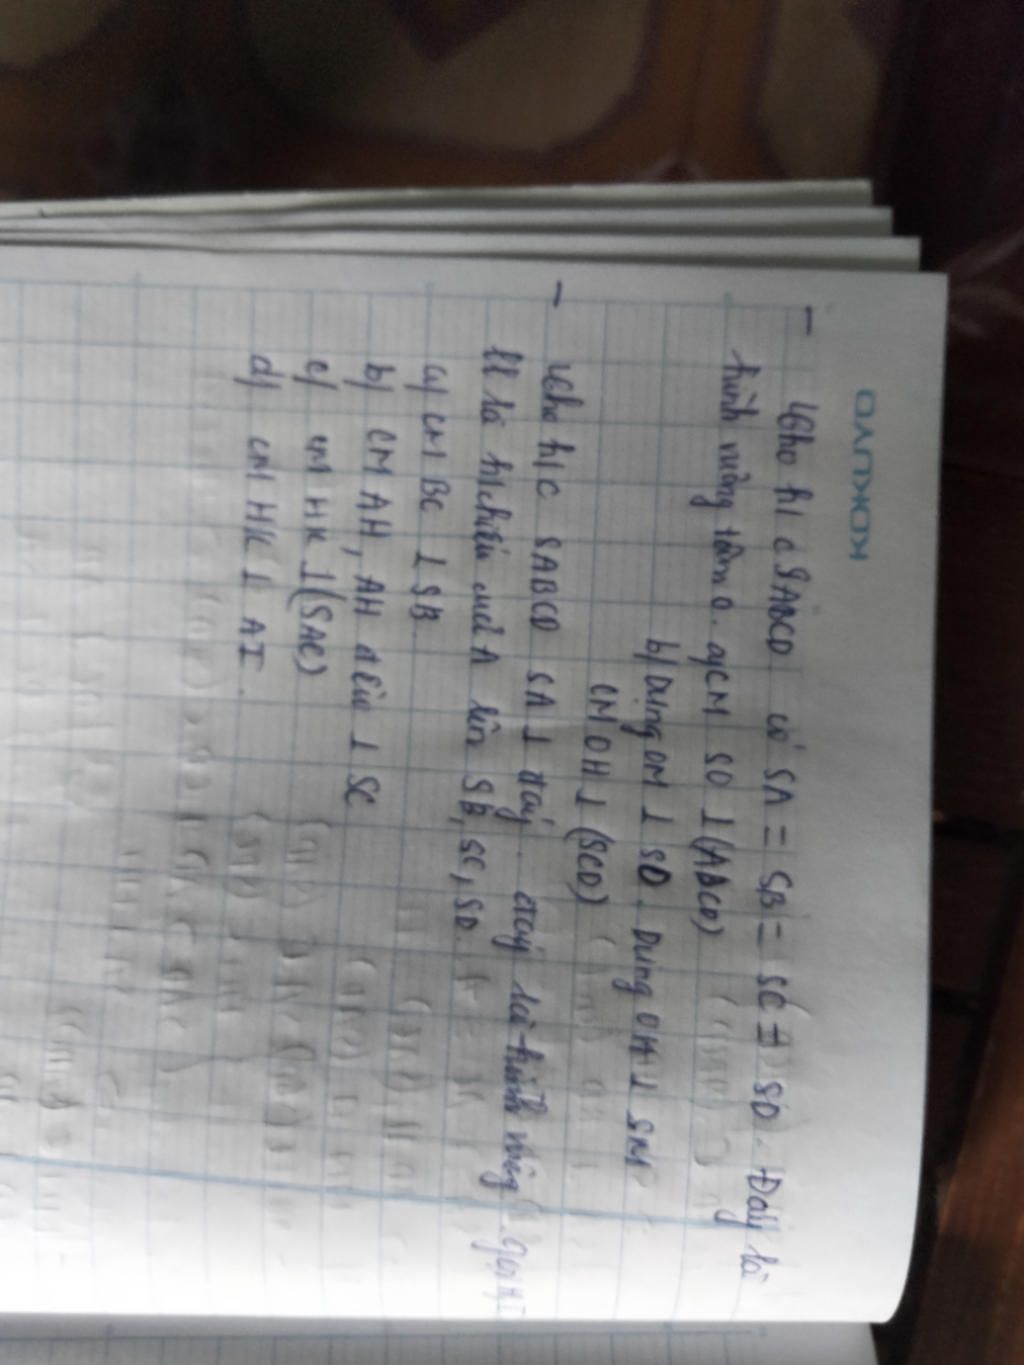 KOKUYO
– Cho h/c SABCD có SA = SB = SC = SD. Đáy là
hình vuông tâm O. a/ CM SO ⊥ (ABCD)
b/ Dựng OM ⊥ SD. Dựng OH ⊥ SM
CM OH ⊥ (SCD)
– Cho h/c SABCD SA ⊥ đáy. đáy là hình vuông. gọi H, I
K là h/chiếu của A lên SB, SC, SD.
a/ CM BC ⊥ SB.
b/ CM AH, AH đều ⊥ SC
c/ CM HK ⊥ (SAC)
d/ CM HK ⊥ AI.